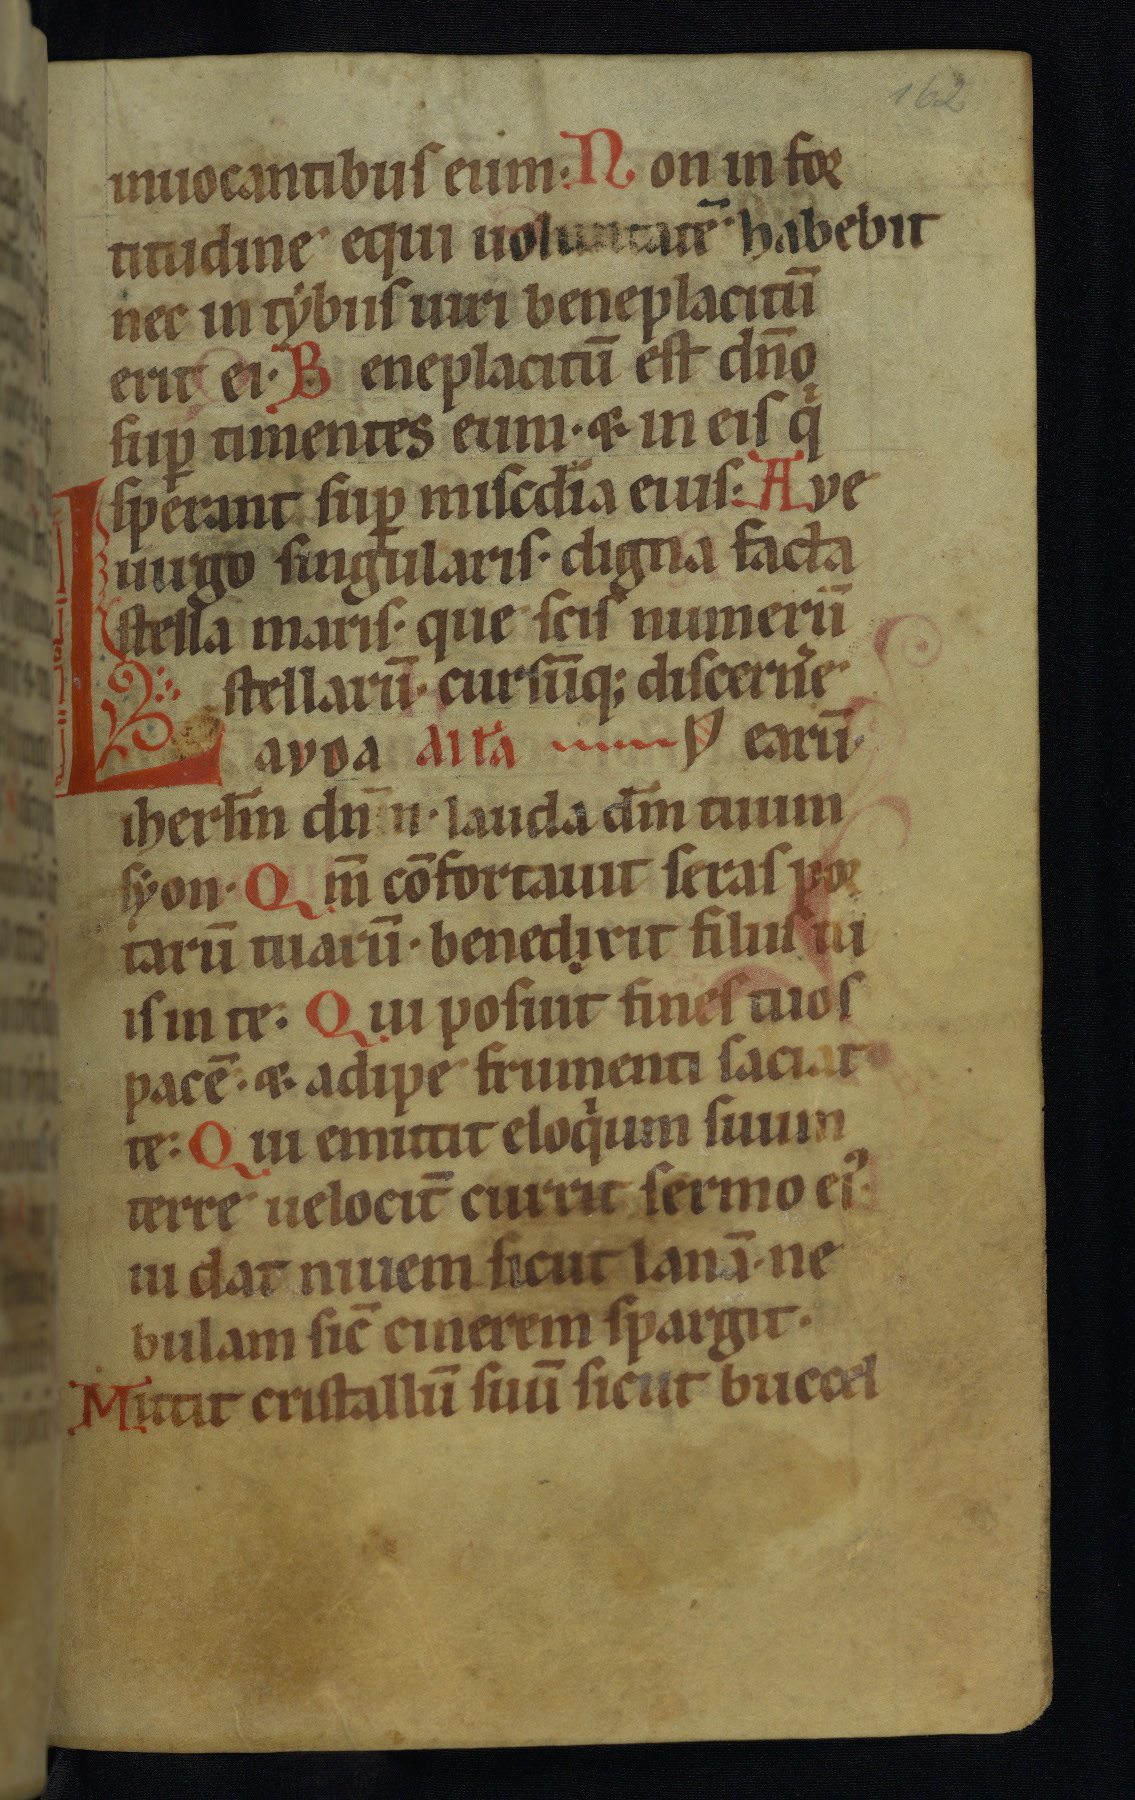 162
inuocantibus eum· Non in for
titudine equi uoluntatē habebit
nec in tybiis uiri beneplacitū
erit ei· Beneplacitū est dn̄o
sup timentes eum· & in eis q̇
sperant sup misc̄dia eius· Aue
uirgo singularis· digna facta
stella maris· que scis numerū
stellarū· cursūq; discern̄e
Lauda earū
iherlm̄ dn̄m· lauda dm̄ tuum
syon· Qm̄ cōfortauit seras por
tarū tuarū· benedixit filiis tu
is in te· Qui posuit fines tuos
pacē· & adipe frumenti saciat
te· Qui emittit eloq̇um suum
terre uelocit̄ currit sermo ei᾿
ui dat niuem sicut lanā· ne
bulam sic̄ cinerem spargit·
Mittit cristallū suū sicut buccel